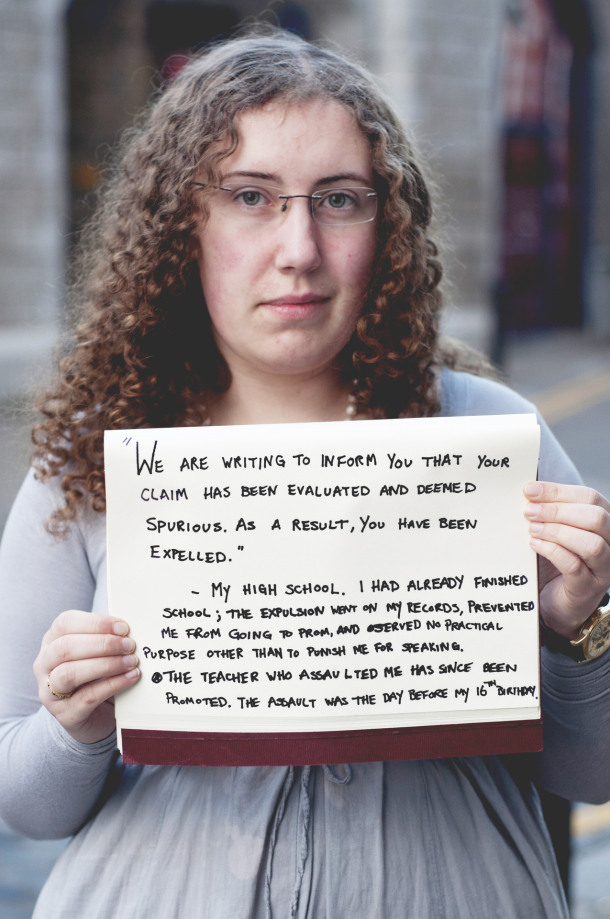 "WE ARE WRITING TO INFORM YOU THAT YOUR
CLAIM HAS BEEN EVALUATED AND DEEMED
SPURIOUS. AS A RESULT, YOU HAVE BEEN
EXPELLED."
- MY HIGH SCHOOL. I HAD ALREADY FINISHED
SCHOOL; THE EXPULSION WENT ON MY RECORDS, PREVENTED
ME FROM GOING TO PROM, AND SERVED NO PRACTICAL
PURPOSE OTHER THAN TO PUNISH ME FOR SPEAKING.
• THE TEACHER WHO ASSAULTED ME HAS SINCE BEEN
PROMOTED. THE ASSAULT WAS THE DAY BEFORE MY 16TH BIRTHDAY.